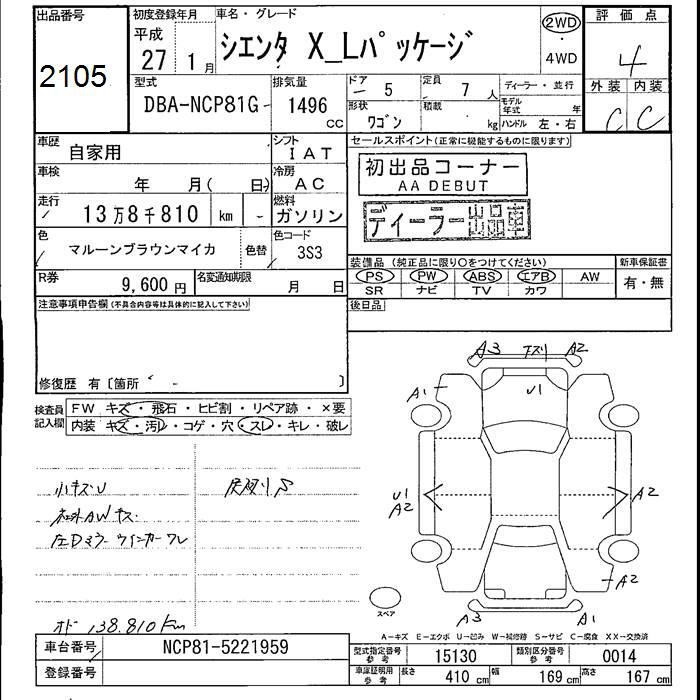 出品番号
2105
初度登録年月
平成
27年 1月
車名・グレード
シエンタ X_Lパッケージ
2WD
・
4WD
評価点
4
外装 内装
C C
型式
DBA-NCP81G
排気量
1496 CC
ドア
5
定員
7人
ディーラー・並行
形状
ワゴン
積載
kg
モデル年式 年
ハンドル 左・右
車歴
自家用
シフト
IAT
車検
年 月( 日)
冷房
AC
走行
13万8千810 km
燃料
ガソリン
色
マルーンブラウンマイカ
色替
色コード
3S3
R券
9,600 円
名変通知期限
月 日
セールスポイント(正常に機能するものに限ります)
初出品コーナー
AA DEBUT
ディーラー出品車
装備品 (純正品に限り○をつけてください)
PS PW ABS エアB AW
SR ナビ TV カワ
新車保証書
有・無
後日品
注意事項申告欄(不具合内容等は具体的に記入して下さい)
修復歴 有〔箇所 〕
検査員
記入欄
FW キズ・飛石・ヒビ割・リペア跡・×要
内装 キズ・汚レ・コゲ・穴・スレ・キレ・破レ
小キズU
社外AWキズ
左Dミラーウインカーワレ
オド 138.810km
A3 下スリ A2
A1
U1
U1
A2
A2
A2
A3
A1
スペア
A-キズ E-エクボ U-凹み W-補修跡 S-サビ C-腐食 XX-交換済
車台番号
NCP81-5221959
登録番号
型式指定番号
参考
15130
類別区分番号
参考
0014
車庫証明用
参考
長さ 410 cm
幅 169 cm
高さ 167 cm